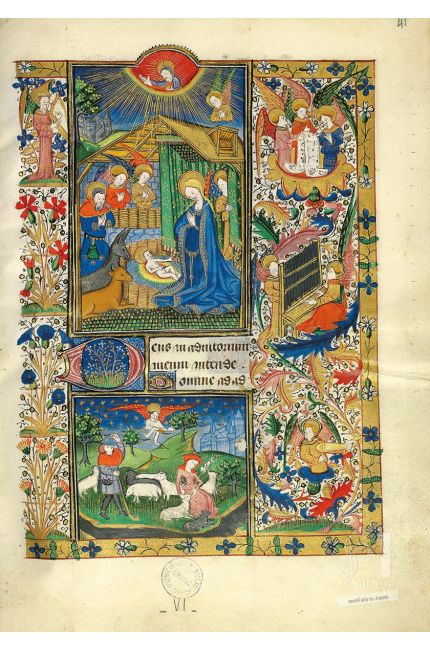 41
Deus in adiutorium
meum intende.
Domine ad ad
- VI -
moleiro.com